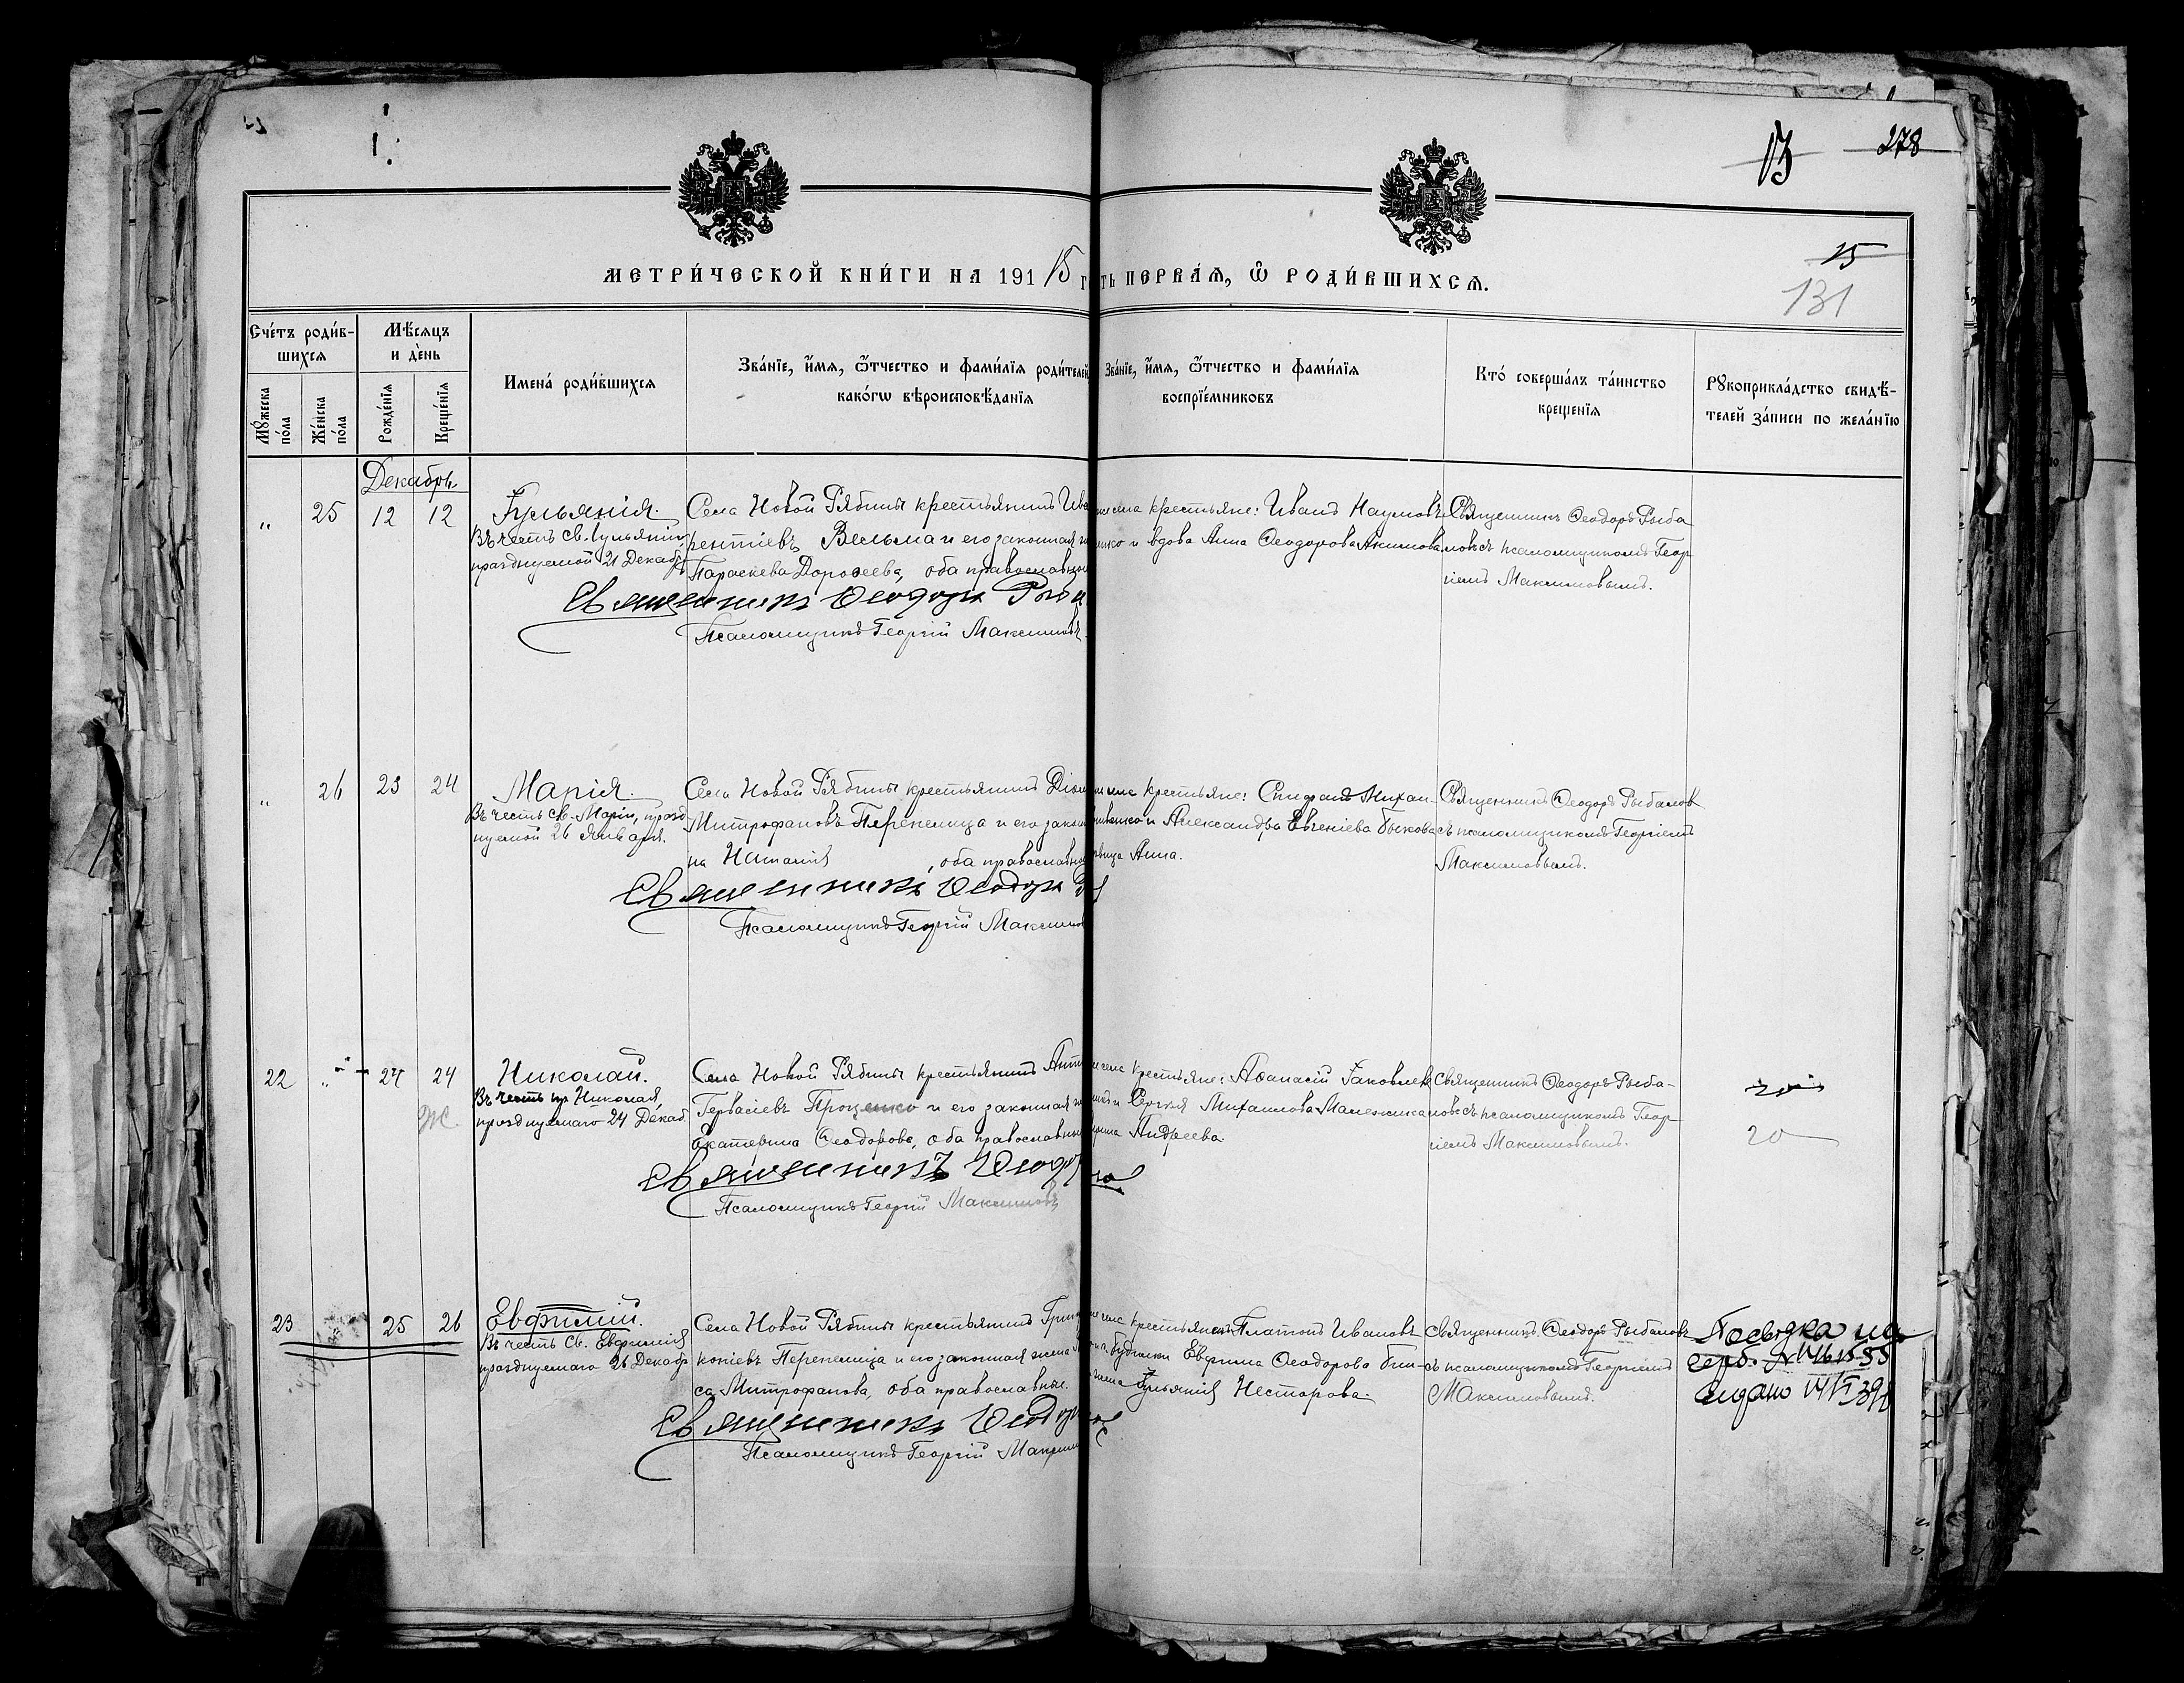 13 278
МЕТРИ́ЧЕСКОЙ КНИ́ГИ НА 1915 Г
ТЬ ПЕРВАѦ, Ѿ РОДИ́ВШИХСѦ.
15
131
Сче́тъ роди́в-
шихся
Мѣ́сяцъ
и де́нь
Мꙋ́жеска
по́ла
Же́нска
по́ла
Рожде́нїя
Креще́нїя
Имена́ роди́вшихся
Зва́нїе, и́мя, ѻ҆́тчество и фами́лїя роди́телей
како́гѡ вѣроисповѣ́данїя
Зва́нїе, и́мя, ѻ҆́тчество и фами́лїя
воспрїе́мниковъ
Кто́ соверша́лъ та́инство
креще́нїя
Рꙋкоприкла́дство свидѣ́-
телей за́писи по жела́нїю
Декабрь
„ 25 12 12
Іульянія.
Въ честь св. Іульяніи,
празднуемой 21 Декабр.
Села Новой Рябины крестьянинъ Ива
рентіевъ Вельма и его законная ж
Параскева Доровеева, оба православные
Священникъ Ѳеодоръ Рыба
Псаломщикъ Георгій Максимовъ.
села крестьяне: Иванъ Наумовъ
нко и вдова Анна Ѳеодорова Акимова
Священникъ Ѳеодоръ Рыба
ловъ съ псаломщикомъ Геор
гіемъ Максимовымъ.
„ 26 23 24
Марія.
Въ честь св. Маріи, празд
нуемой 26 Января.
Села Новой Рябины крестьянинъ Діон
Митрофановъ Перепелица и его закон
на Наталія , оба православные
Священникъ Ѳеодоръ Ры
Псаломщикъ Георгій Максимов
села крестьяне:
и Александра Евгеніева Быкова
вица Анна.
Священникъ Ѳеодоръ Рыбалов
съ псаломщикомъ Георгіемъ
Максимовымъ.
22 „ 24 24
Николай.
Въ честь пр. Николая,
празднуемаго 24 Декаб.
Села Новой Рябины крестьянинъ Ант
Гервасіевъ Проценко и его законная ж
Екатерина Ѳеодорова, оба православные
Священникъ Ѳеодор
Псаломщикъ Георгій Максимовъ
села крестьяне: Аѳанасій Іаковлев
Михаилова
Андреева.
Священникъ Ѳеодоръ Рыба-
ловъ съ псаломщикомъ Геор
гіемъ Максимовымъ.
20
23 „ 25 26
Евфимій.
Въ честь Св. Евфимія
празднуемаго 26 Декабр
Села Новой Рябины крестьянинъ Григ
копіевъ Перепелица и его законная жена
са Митрофанова, оба православные.
Священникъ Ѳеодоръ
Псаломщикъ Георгій Максим
села крестьяне: Платонъ Ивановъ
Евфима Ѳеодорова
жена Іульянія Несторова.
Священникъ Ѳеодоръ Рыбаловъ
съ псаломщикомъ Георгіемъ
Максимовымъ.